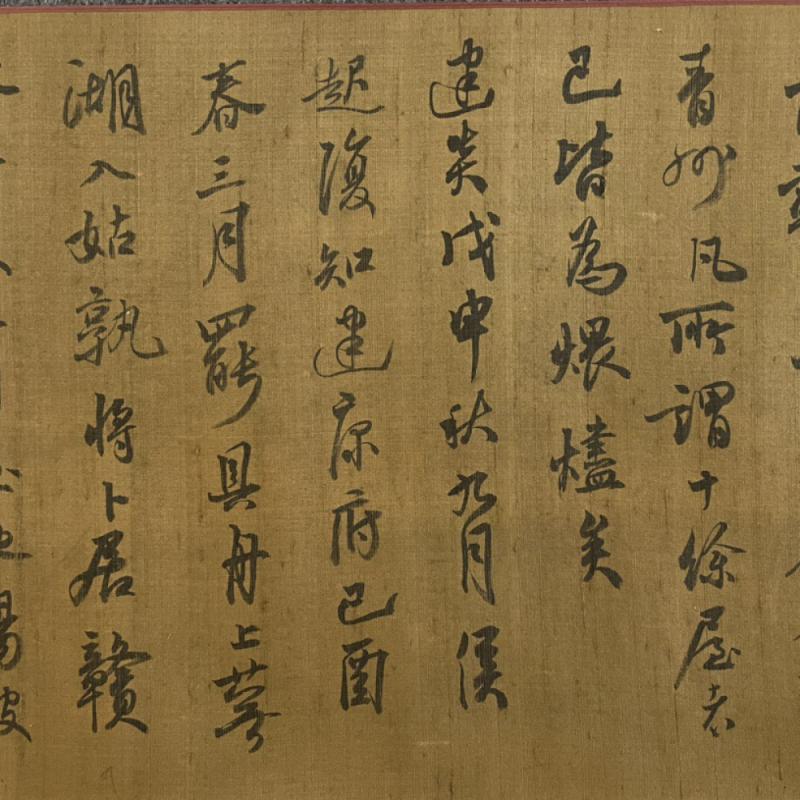 青州凡所謂十餘屋者
已皆為煨燼矣
建炎戊申秋九月侯
起復知建康府己酉
春三月罷具舟上蕪
湖入姑孰將卜居贛